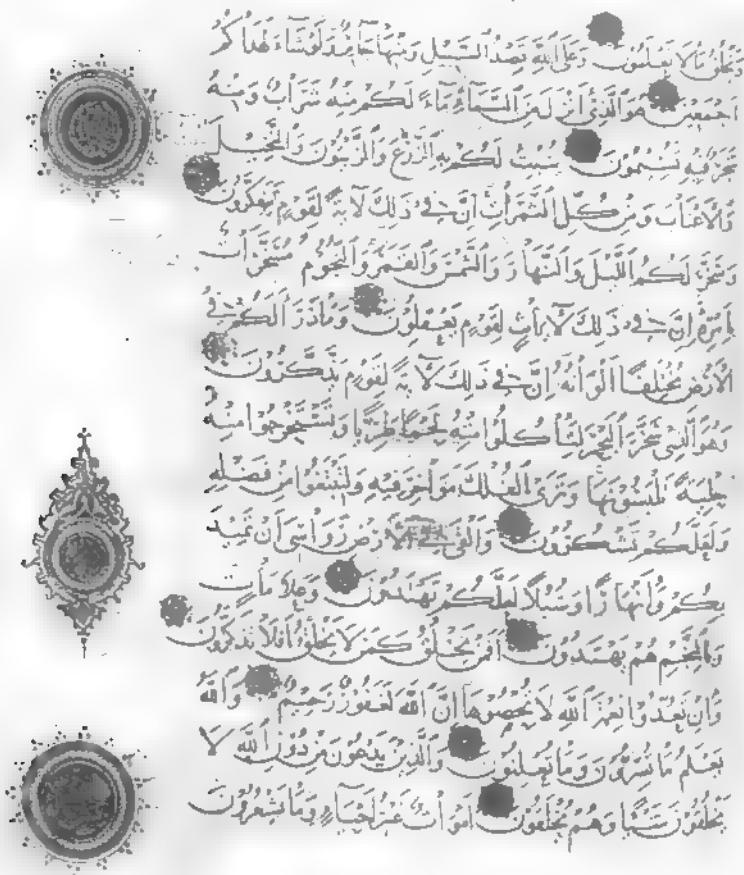 ويخلق ما لا تعلمون وعلى الله قصد السبيل ومنها جائر ولو شاء لهداكم
اجمعين هو الذي انزل من السماء ماء لكم منه شراب ومنه
شجر فيه تسيمون ينبت لكم به الزرع والزيتون والنخيل
والاعناب ومن كل الثمرات ان في ذلك لاية لقوم يتفكرون
وسخر لكم الليل والنهار والشمس والقمر والنجوم مسخرات
بامره ان في ذلك لايات لقوم يعقلون وما ذرا لكم في
الارض مختلفا الوانه ان في ذلك لاية لقوم يذكرون
وهو الذي سخر البحر لتاكلوا منه لحما طريا وتستخرجوا منه
حلية تلبسونها وترى الفلك مواخر فيه ولتبتغوا من فضله
ولعلكم تشكرون والقى في الارض رواسي ان تميد
بكم وانهارا وسبلا لعلكم تهتدون وعلامات
وبالنجم هم يهتدون افمن يخلق كمن لا يخلق افلا تذكرون
وان تعدوا نعمة الله لا تحصوها ان الله لغفور رحيم والله
يعلم ما تسرون وما تعلنون والذين يدعون من دون الله لا
يخلقون شيا وهم يخلقون اموات غير احياء وما يشعرون